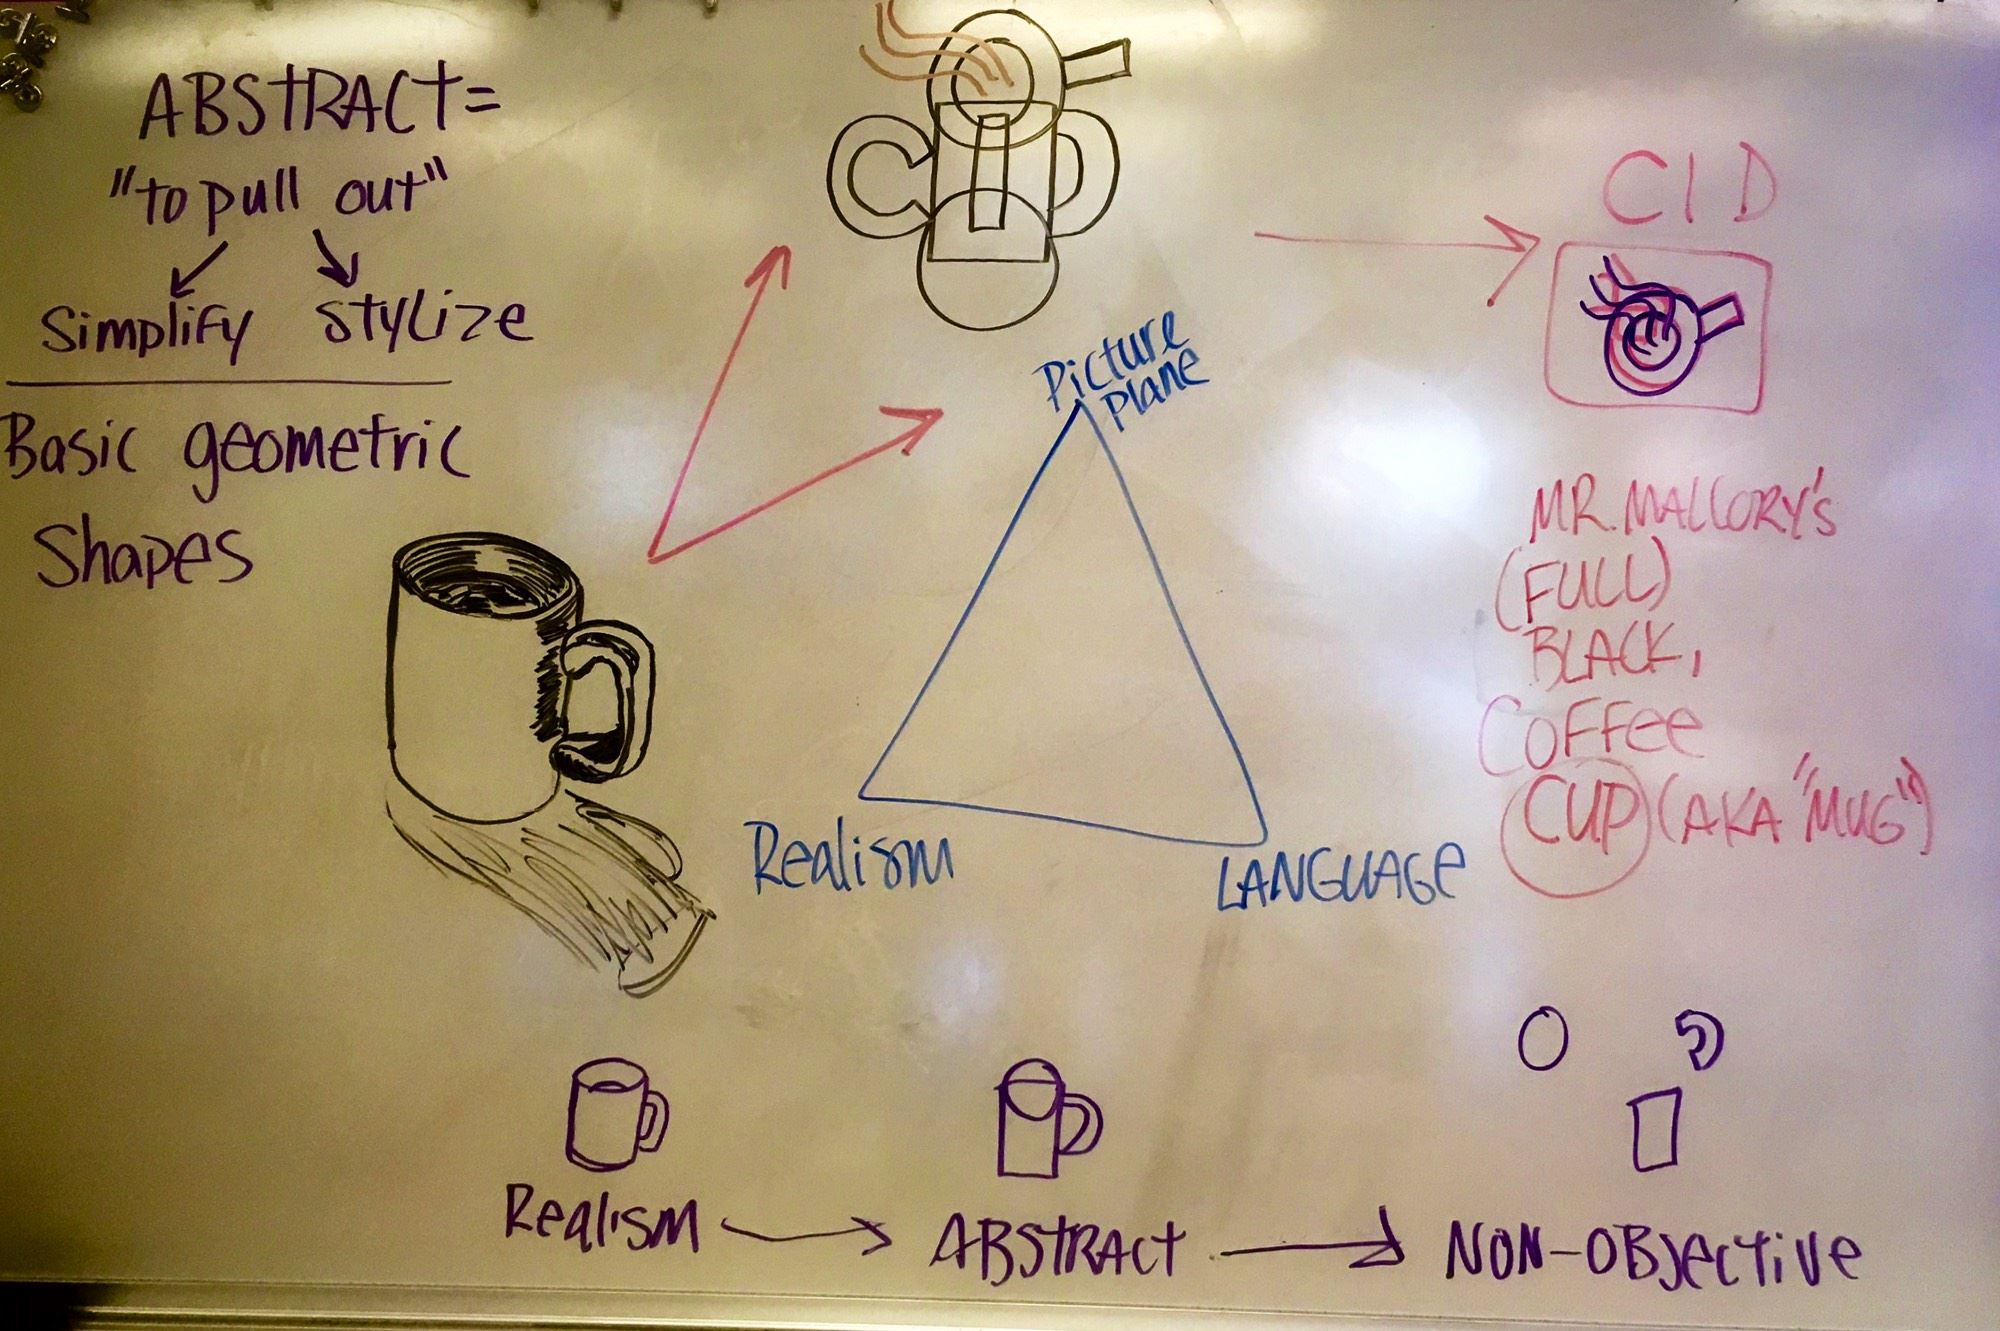 ABSTRACT=
"to pull out"
Simplify stylize
Basic geometric
Shapes
Picture
Plane
Realism
LANGUAGE
CID
MR. MALLORY's
(FULL)
BLACK,
COFFee
CUP (AKA "MUG")
Realism
ABSTRACT
NON-OBJective